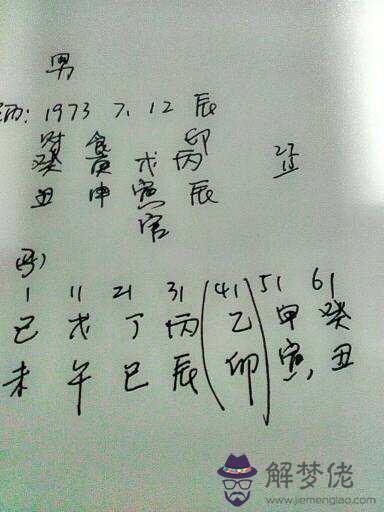 男
历: 1973 7. 12 辰
财 食 卩
癸 庚 戊 丙
丑 申 寅 辰
官
1 11 21 31 (41) 51 61
己 戊 丁 丙 乙 甲 癸
未 午 巳 辰 卯 寅, 丑
解梦佬
www.jiemenglao.com